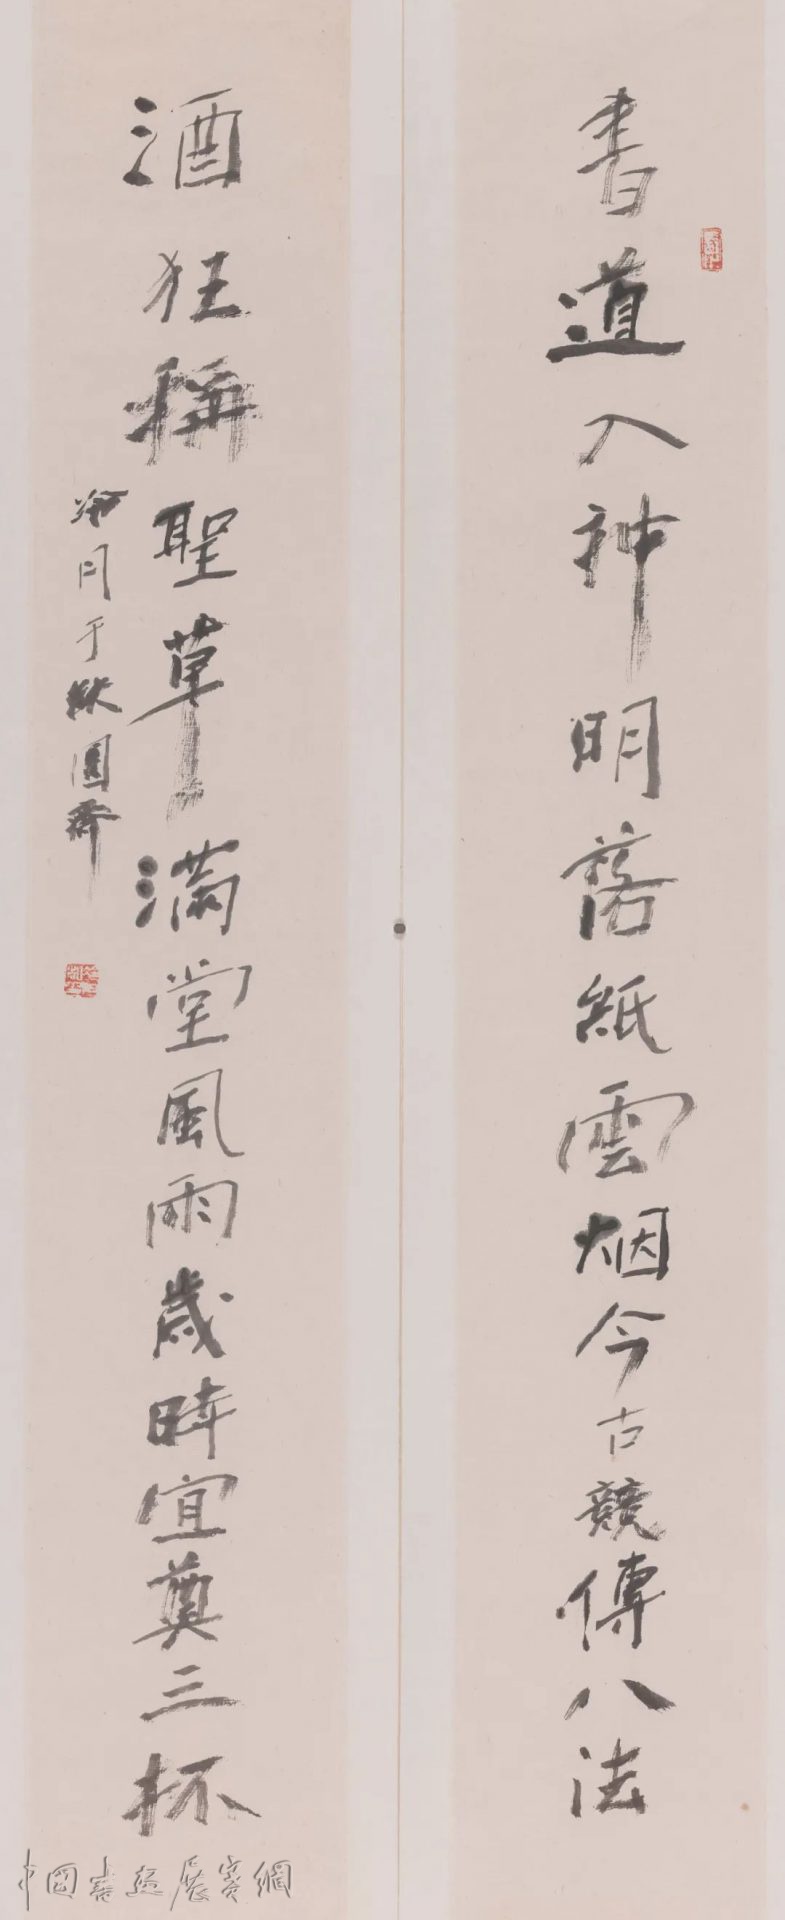 書道入神明落紙雲烟今古競傳八法
酒狂稱聖草滿堂風雨歲時宜奠三杯
月于 園齋
中國書画展賽網